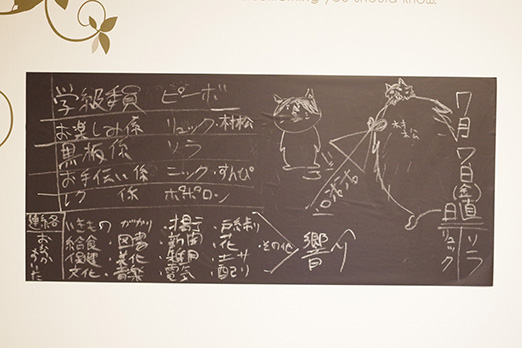 you should know
学級委員 ピーボ
お楽しみ係 リュック・村松
黒板係 ソラ
お手伝い係 ニック・すんぴ
レク係 ポポロン
連絡
おなか
すいた
いきもの・がかり・掲示・戸締り
給食・図書・新聞・花
保健・美化・雑用・エサ
文化・音楽・電気・配り
その他
響
ロボホ
村松
7月7日(金)
日直
ソラ
リュック